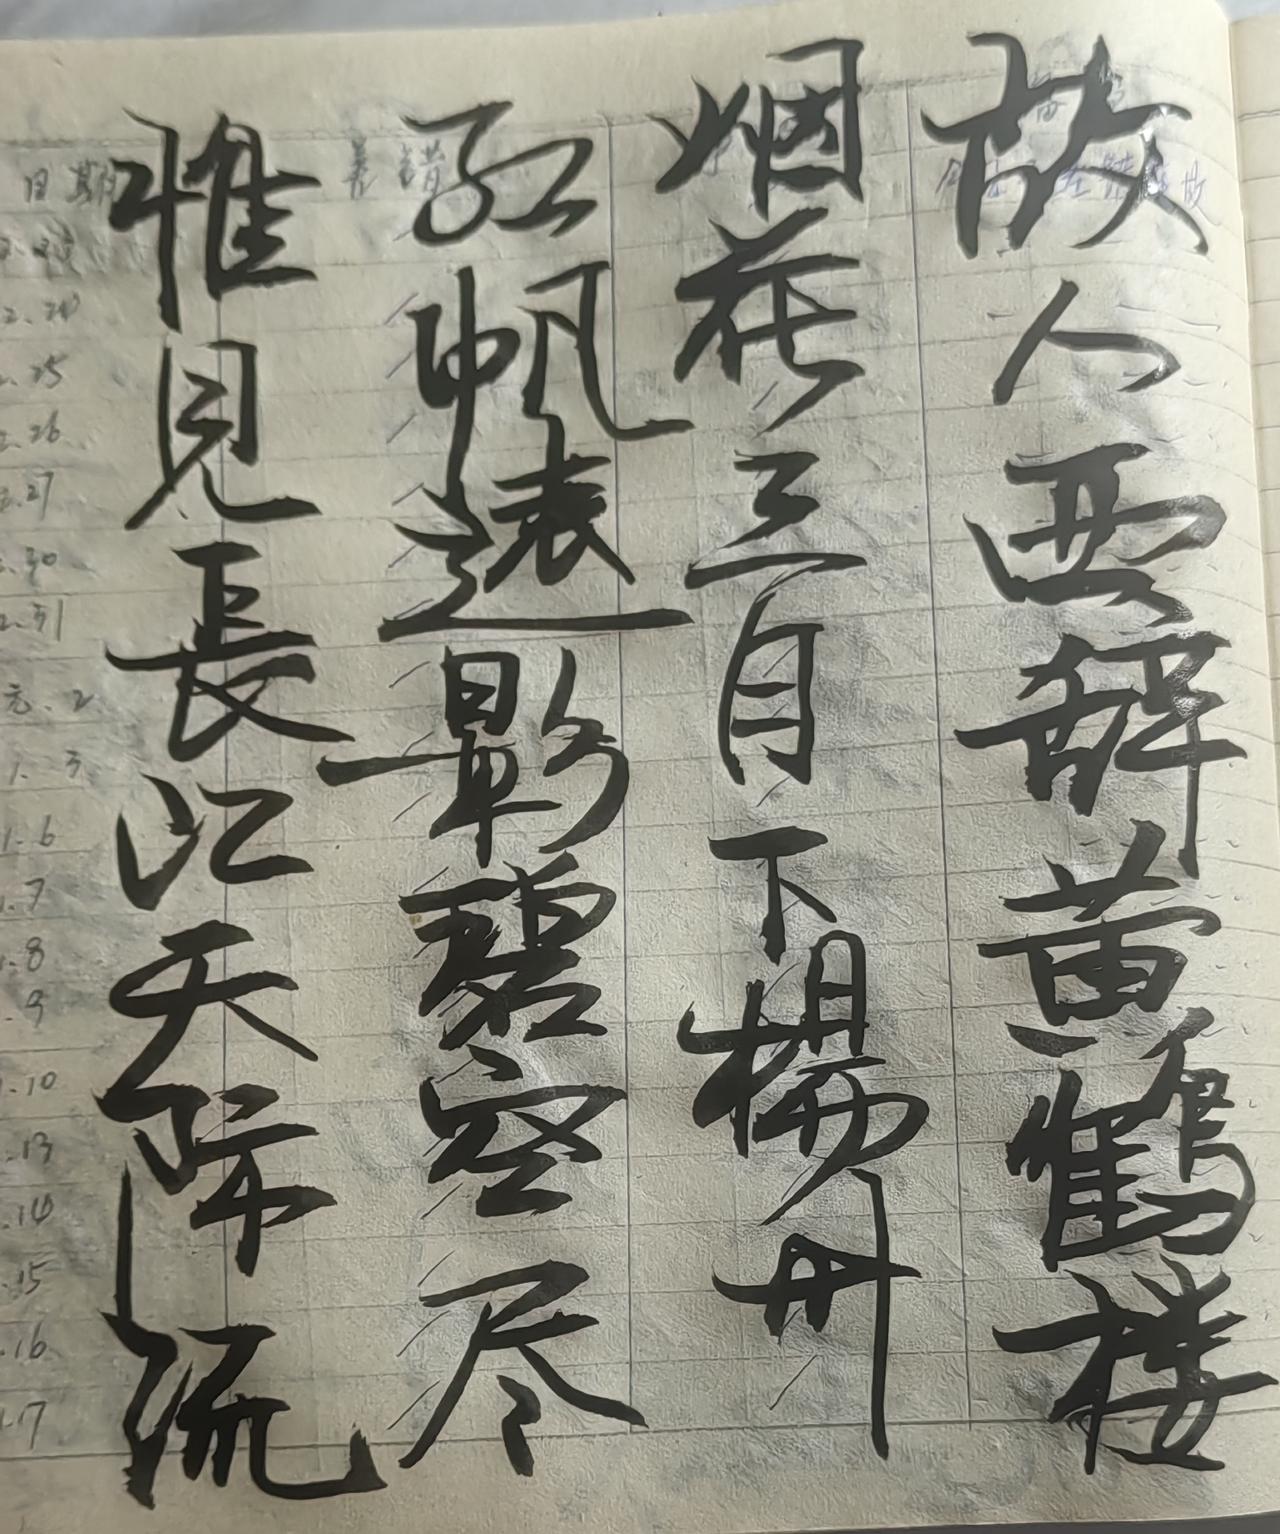 故人西辞黄鹤楼
烟花三月下楊州
孤帆遠影碧空尽
惟見長江天际流
日期
2.25
2.26
2.27
2.30
2.31
元.2
1.3
1.6
1.7
1.8
1.9
1.10
1.13
1.14
1.15
1.16
1.17